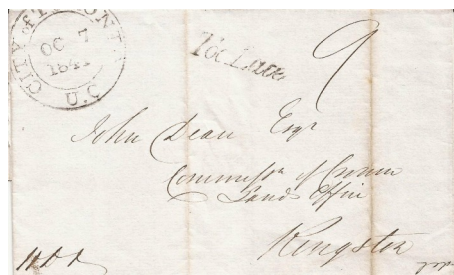 CITY of TORONTO U.C
OC 7
184
Too Late
9
John Dean Esqr
Commissr of Crown
Lands Office
Kingston